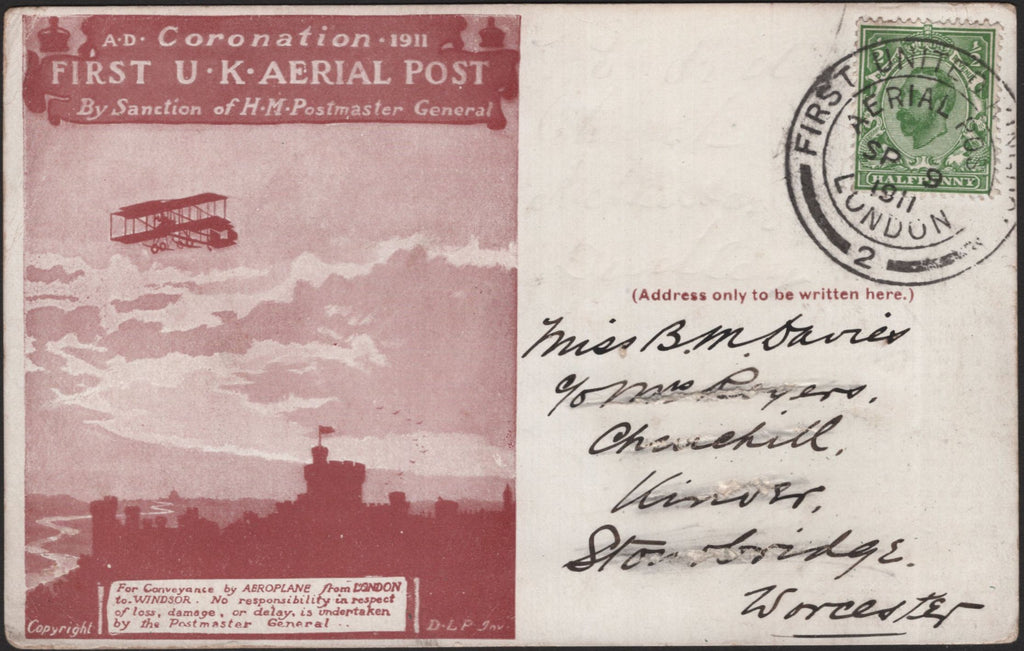 A·D· Coronation · 1911
FIRST U·K·AERIAL POST
By Sanction of H·M·Postmaster General
For Conveyance by AEROPLANE from LONDON
to WINDSOR. No responsibility in respect
of loss, damage, or delay, is undertaken
by the Postmaster General..
Copyright
D·L·P Inv
HALFPENNY
FIRST UNITED
AERIAL PO
SP 9
1911
LONDON
2
(Address only to be written here.)
Miss B. M. Davies
c/o Mrs
Churchill,
Kinver,
Stourbridge.
Worcester